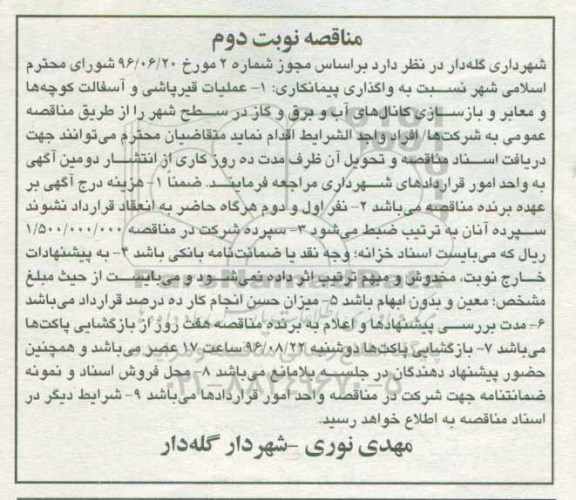 مناقصه نوبت دوم
شهرداری گله‌دار در نظر دارد براساس مجوز شماره ۲ مورخ ۹۶/۰۶/۲۰ شورای محترم
اسلامی شهر نسبت به واگذاری پیمانکاری: ۱- عملیات قیرپاشی و آسفالت کوچه‌ها
و معابر و بازسازی کانال‌های آب و برق و گاز در سطح شهر را از طریق مناقصه
عمومی به شرکت‌ها/ افراد واجد الشرایط اقدام نماید متقاضیان محترم می‌توانند جهت
دریافت اسناد مناقصه و تحویل آن ظرف مدت ده روز کاری از انتشار دومین آگهی
به واحد امور قراردادهای شهرداری مراجعه فرمایند. ضمناً ۱- هزینه درج آگهی بر
عهده برنده مناقصه می‌باشد ۲- نفر اول و دوم هرگاه حاضر به انعقاد قرارداد نشوند
سپرده آنان به ترتیب ضبط می‌شود ۳- سپرده شرکت در مناقصه ۱/۵۰۰/۰۰۰/۰۰۰
ریال که می‌بایست اسناد خزانه؛ وجه نقد یا ضمانت‌نامه بانکی باشد ۴- به پیشنهادات
خارج نوبت، مخدوش و مبهم ترتیب اثر داده نمی‌شود و می‌بایست از حیث مبلغ
مشخص؛ معین و بدون ابهام باشد ۵- میزان حسن انجام کار ده درصد قرارداد می‌باشد
۶- مدت بررسی پیشنهادها و اعلام به برنده مناقصه هفت روز از بازگشایی پاکت‌ها
می‌باشد ۷- بازگشایی پاکت‌ها دوشنبه ۹۶/۰۸/۲۲ ساعت ۱۷ عصر می‌باشد و همچنین
حضور پیشنهاد دهندگان در جلسه بلامانع می‌باشد ۸- محل فروش اسناد و نمونه
ضمانتنامه جهت شرکت در مناقصه واحد امور قراردادها می‌باشد ۹- شرایط دیگر در
اسناد مناقصه به اطلاع خواهد رسید.
مهدی نوری -شهردار گله‌دار
۰۲۱-۸۸۳۴۹۶۷۰-۵